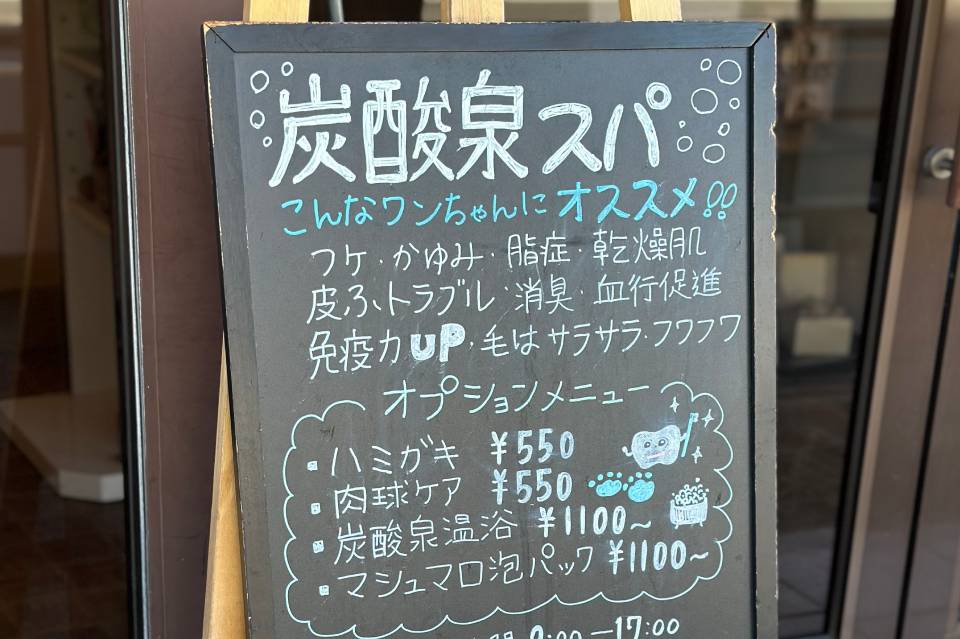 炭酸泉スパ
こんなワンちゃんにオススメ!!
フケ・かゆみ・脂症・乾燥肌
皮ふトラブル・消臭・血行促進
免疫力UP・毛はサラサラ・フワフワ
オプションメニュー
・ハミガキ ¥550
・肉球ケア ¥550
・炭酸泉温浴 ¥1100~
・マシュマロ泡パック ¥1100~
9:00-17:00